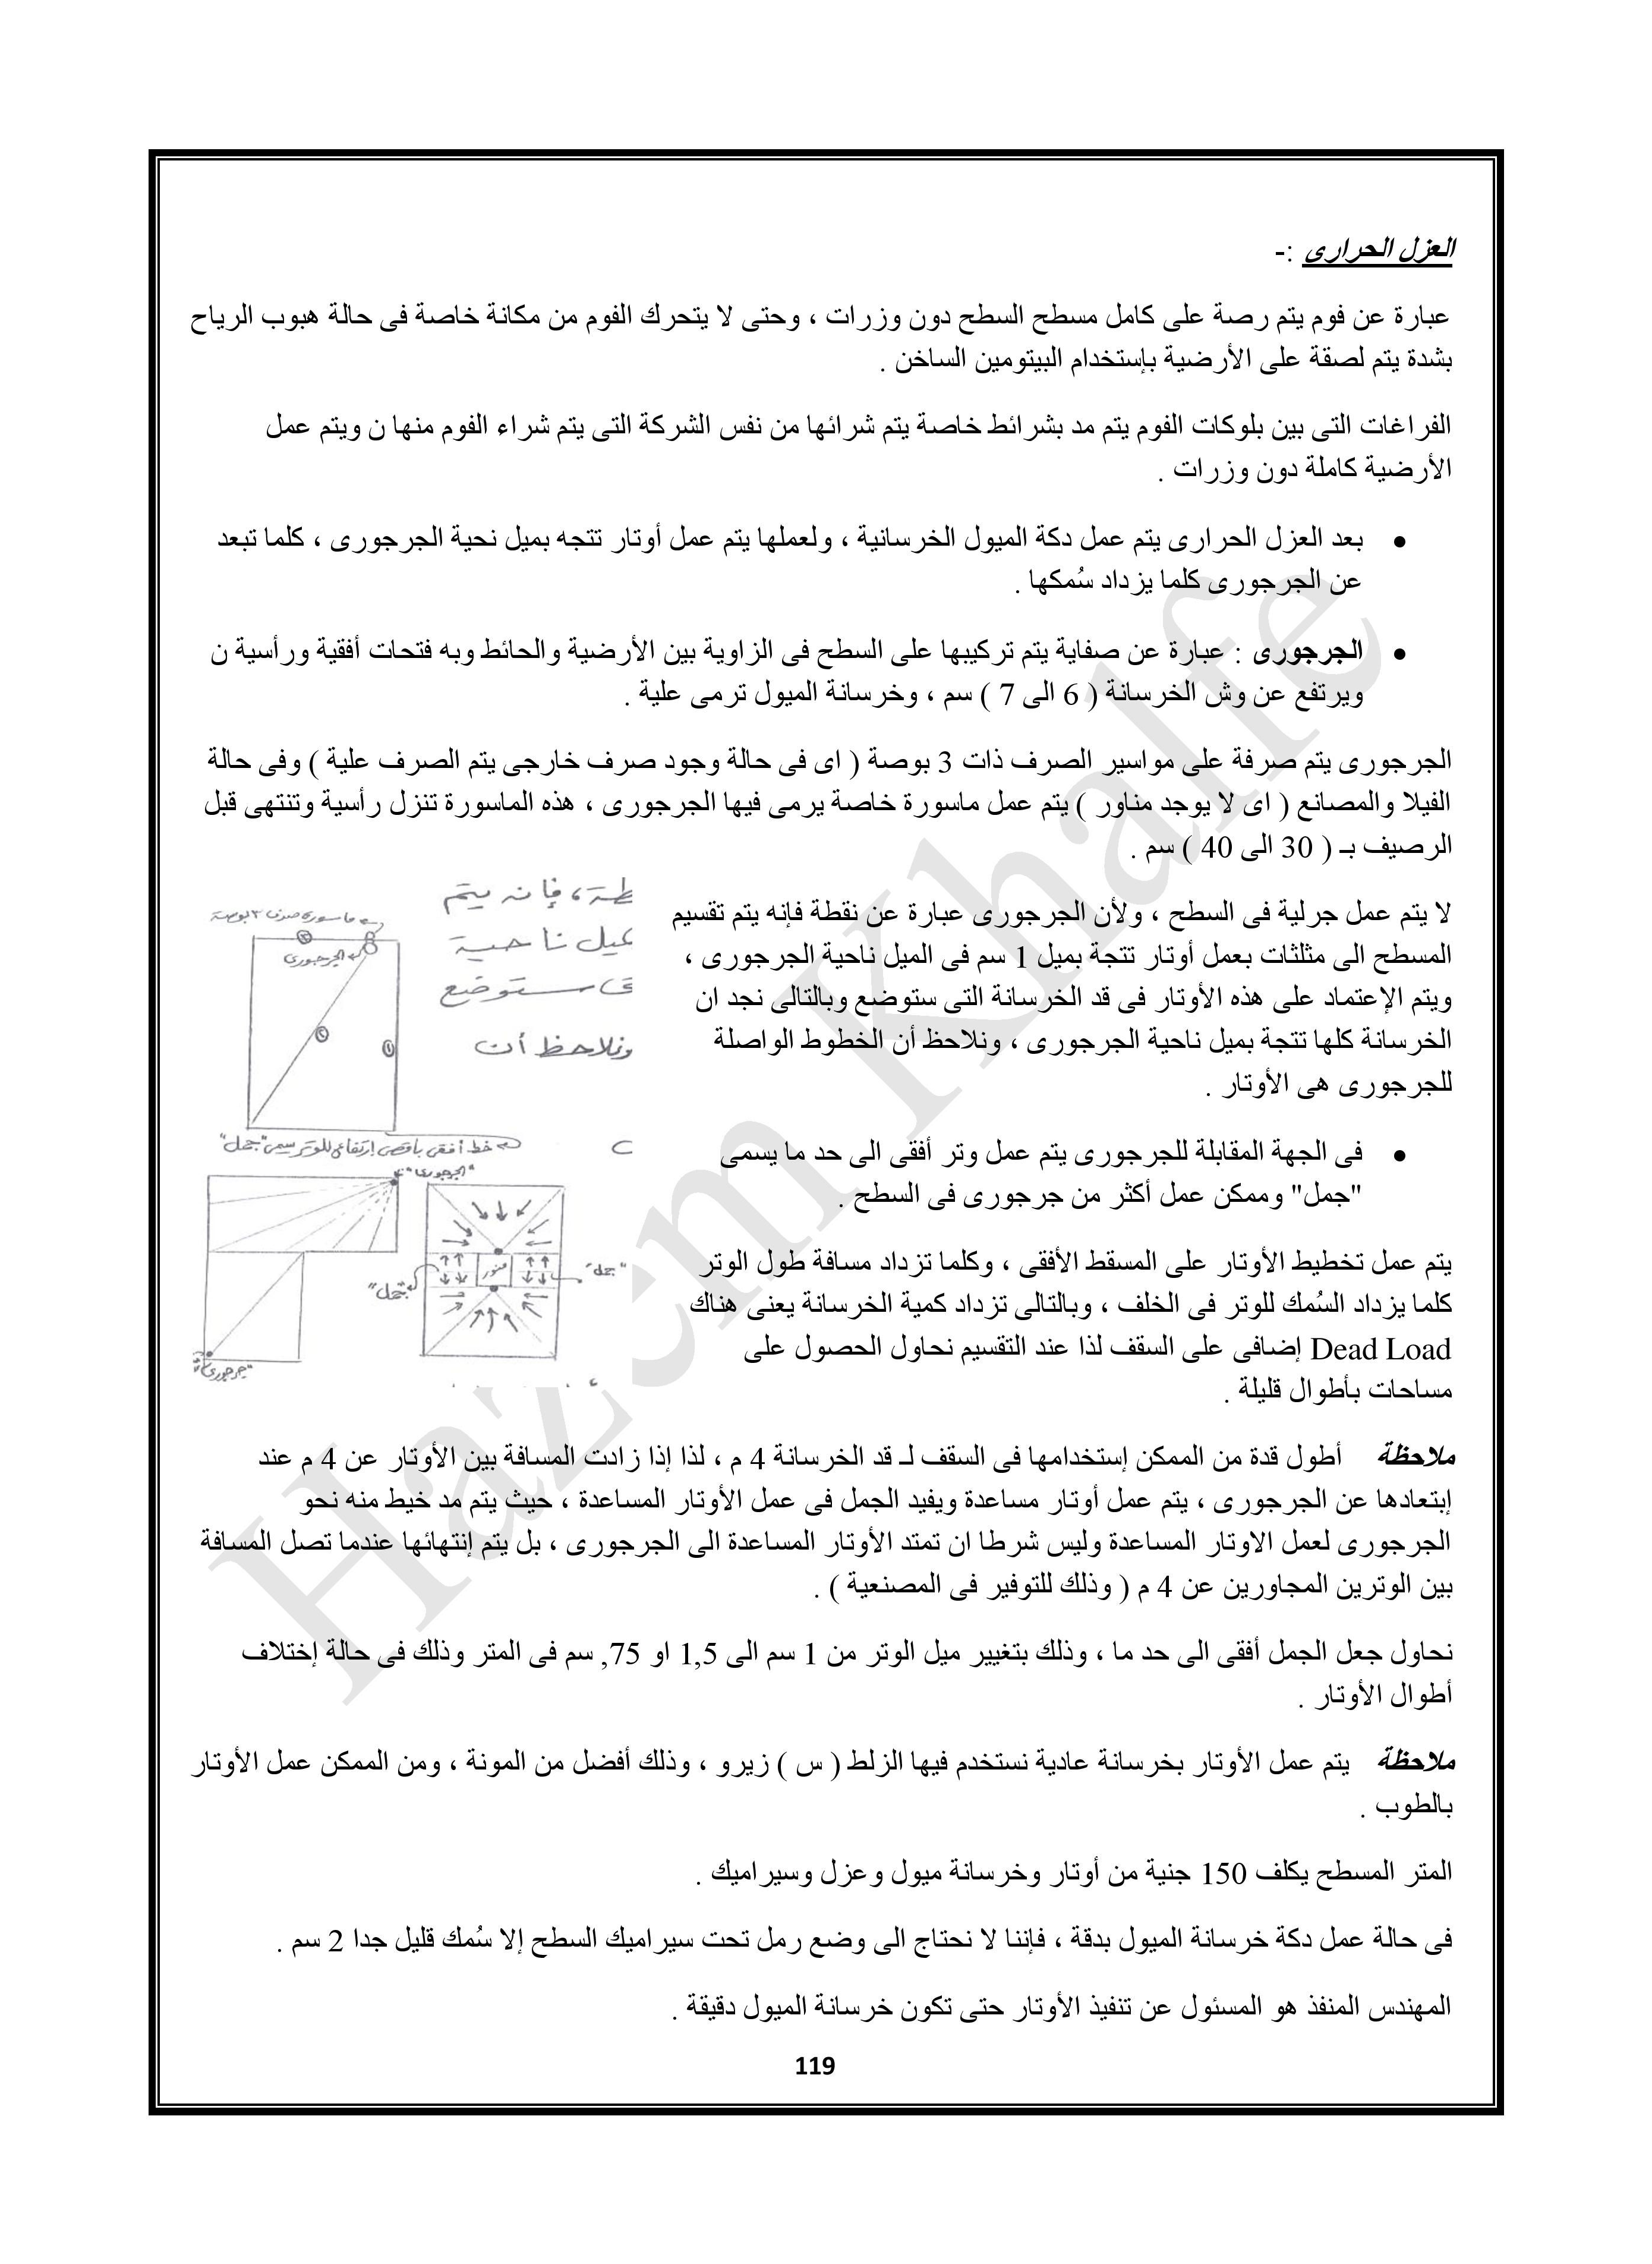 العزل الحرارى :-
عبارة عن فوم يتم رصة على كامل مسطح السطح دون وزرات ، وحتى لا يتحرك الفوم من مكانة خاصة فى حالة هبوب الرياح
بشدة يتم لصقة على الأرضية بإستخدام البيتومين الساخن .
الفراغات التى بين بلوكات الفوم يتم مد بشرائط خاصة يتم شرائها من نفس الشركة التى يتم شراء الفوم منها ن ويتم عمل
الأرضية كاملة دون وزرات .
• بعد العزل الحرارى يتم عمل دكة الميول الخرسانية ، ولعملها يتم عمل أوتار تتجه بميل نحية الجرجورى ، كلما تبعد
عن الجرجورى كلما يزداد سُمكها .
• الجرجورى : عبارة عن صفاية يتم تركيبها على السطح فى الزاوية بين الأرضية والحائط وبه فتحات أفقية ورأسية ن
ويرتفع عن وش الخرسانة ( 6 الى 7 ) سم ، وخرسانة الميول ترمى علية .
الجرجورى يتم صرفة على مواسير الصرف ذات 3 بوصة ( اى فى حالة وجود صرف خارجى يتم الصرف علية ) وفى حالة
الفيلا والمصانع ( اى لا يوجد مناور ) يتم عمل ماسورة خاصة يرمى فيها الجرجورى ، هذه الماسورة تنزل رأسية وتنتهى قبل
الرصيف بـ ( 30 الى 40 ) سم .
لا يتم عمل جرلية فى السطح ، ولأن الجرجورى عبارة عن نقطة فإنه يتم تقسيم
المسطح الى مثلثات بعمل أوتار تتجة بميل 1 سم فى الميل ناحية الجرجورى ،
ويتم الإعتماد على هذه الأوتار فى قد الخرسانة التى ستوضع وبالتالى نجد ان
الخرسانة كلها تتجة بميل ناحية الجرجورى ، ونلاحظ أن الخطوط الواصلة
للجرجورى هى الأوتار .
طة، فإنه يتم
بميل ناحية
ستوضع
ونلاحظ أن
ماسورة صرف ٣ بوصة
الجرجورى
خط أفقى بأقصى إرتفاع للوتر يسمى "جمل"
• فى الجهة المقابلة للجرجورى يتم عمل وتر أفقى الى حد ما يسمى
"جمل" وممكن عمل أكثر من جرجورى فى السطح .
"الجرجورى"
منور
"جمل"
"جمل"
"جرجورى"
يتم عمل تخطيط الأوتار على المسقط الأفقى ، وكلما تزداد مسافة طول الوتر
كلما يزداد السُمك للوتر فى الخلف ، وبالتالى تزداد كمية الخرسانة يعنى هناك
Dead Load إضافى على السقف لذا عند التقسيم نحاول الحصول على
مساحات بأطوال قليلة .
ملاحظة أطول قدة من الممكن إستخدامها فى السقف لـ قد الخرسانة 4 م ، لذا إذا زادت المسافة بين الأوتار عن 4 م عند
إبتعادها عن الجرجورى ، يتم عمل أوتار مساعدة ويفيد الجمل فى عمل الأوتار المساعدة ، حيث يتم مد خيط منه نحو
الجرجورى لعمل الاوتار المساعدة وليس شرطا ان تمتد الأوتار المساعدة الى الجرجورى ، بل يتم إنتهائها عندما تصل المسافة
بين الوترين المجاورين عن 4 م ( وذلك للتوفير فى المصنعية ) .
نحاول جعل الجمل أفقى الى حد ما ، وذلك بتغيير ميل الوتر من 1 سم الى 1,5 او 75, سم فى المتر وذلك فى حالة إختلاف
أطوال الأوتار .
ملاحظة يتم عمل الأوتار بخرسانة عادية نستخدم فيها الزلط ( س ) زيرو ، وذلك أفضل من المونة ، ومن الممكن عمل الأوتار
بالطوب .
المتر المسطح يكلف 150 جنية من أوتار وخرسانة ميول وعزل وسيراميك .
فى حالة عمل دكة خرسانة الميول بدقة ، فإننا لا نحتاج الى وضع رمل تحت سيراميك السطح إلا سُمك قليل جدا 2 سم .
المهندس المنفذ هو المسئول عن تنفيذ الأوتار حتى تكون خرسانة الميول دقيقة .
119
Hazem Khalfe